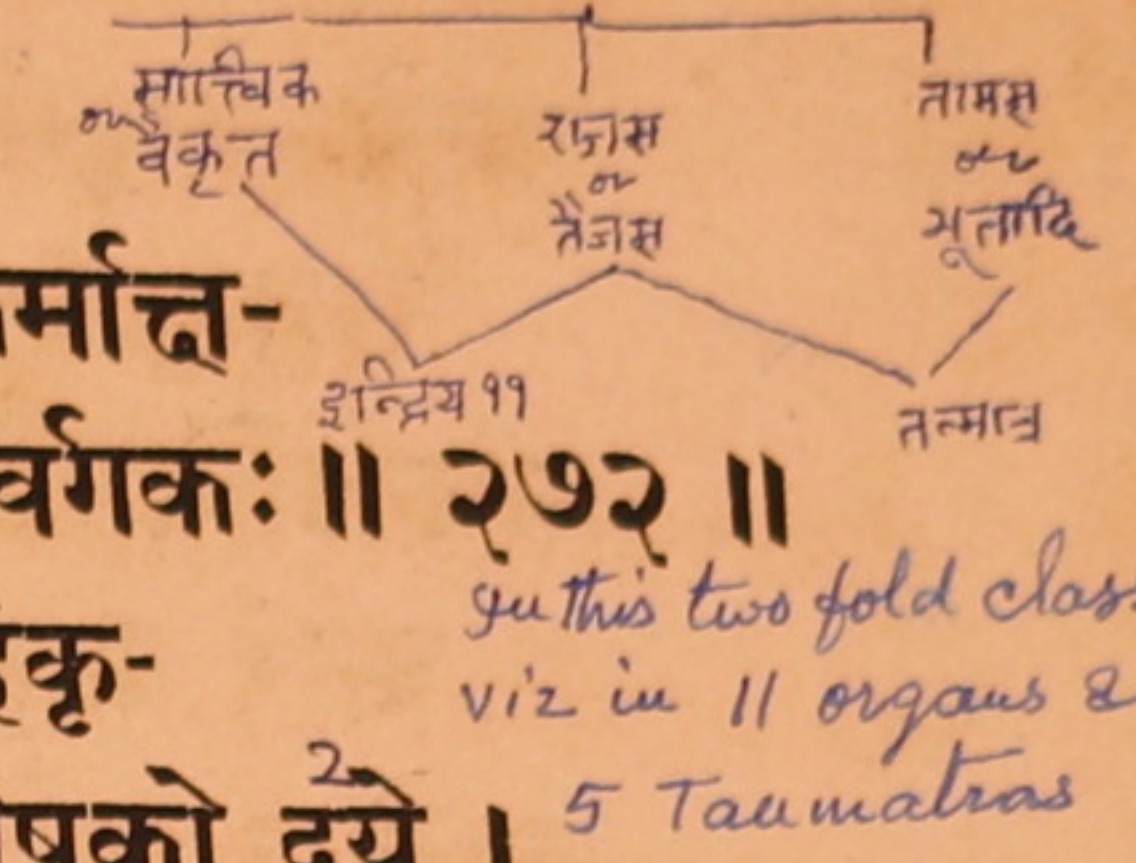 सात्त्विक
or
वैकृत
राजस
or
तैजस
तामस
or
भूतादि
इन्द्रिय ११
तन्मात्र
र्मात्त-
वर्गकः ॥ २७२ ॥
In this two fold clas
viz in 11 organs &
कृ-
2
षको द्वये ।
5 Tanmatras